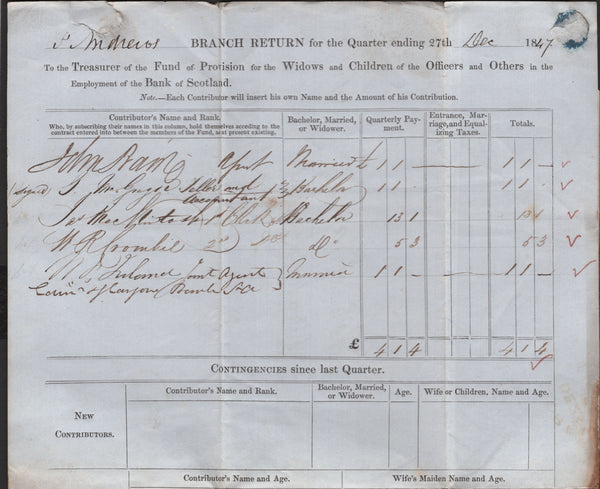 St Andrews BRANCH RETURN for the Quarter ending 27th Dec 1847
To the Treasurer of the Fund of Provision for the Widows and Children of the Officers and Others in the
Employment of the Bank of Scotland.
Note.—Each Contributor will insert his own Name and the Amount of his Contribution.
Contributor's Name and Rank.
Who, by subscribing their names in this column, hold themselves according to the
contract entered into between the members of the Fund, as at present existing.
Bachelor, Married,
or Widower.
Quarterly Pay-
ment.
Entrance, Mar-
riage, and Equal-
izing Taxes.
Totals.
John Agent Married 1 1 — 1 1 —
(signed) Teller and Accountant Bachelor 1 1 1 1 —
Jas MacKintosh 1st Clerk Bachelor 13 1 13 1
W R Crombie 2nd do Do 5 3 5 3
Ireland Joint Agent Married 1 1 — 1 1 —
Bank &c
£ 4 1 4 4 1 4
CONTINGENCIES since last Quarter.
Contributor's Name and Rank.
Bachelor, Married,
or Widower.
Age.
Wife or Children, Name and Age.
NEW
CONTRIBUTORS.
Contributor's Name and Age.
Wife's Maiden Name and Age.